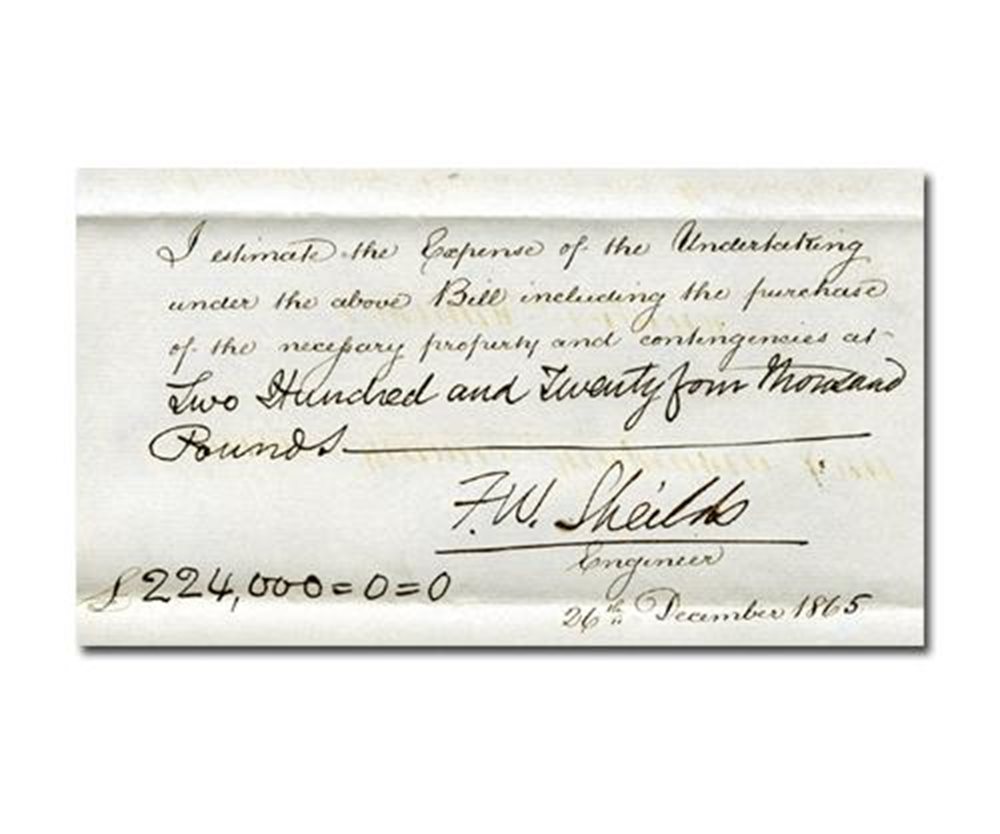 I estimate the Expense of the Undertaking
under the above Bill including the purchase
of the necessary property and contingencies at
Two Hundred and Twenty four Thousand
Pounds
F.W. Sheilds
Engineer
£224,000=0=0
26th December 1865